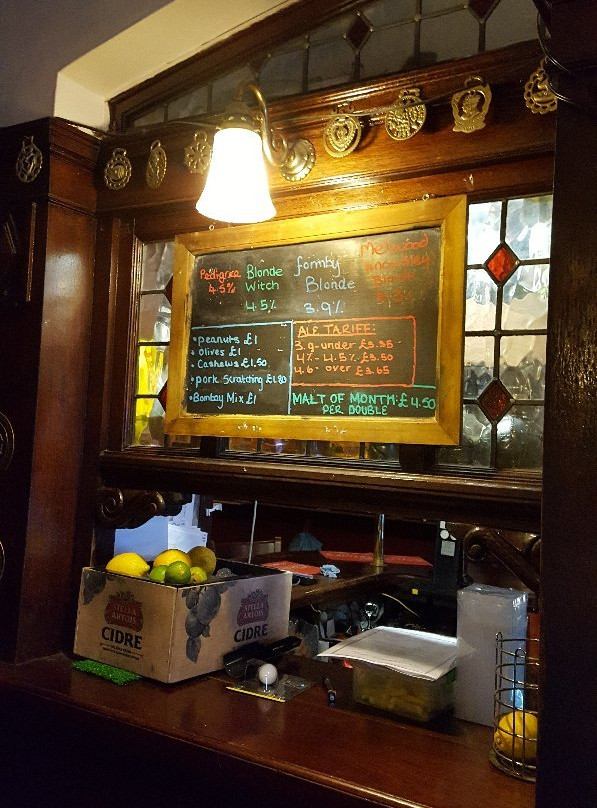 Pedigree
4.5%
Blonde
Witch
4.5%
formby
Blonde
3.9%
Melwood
• peanuts £1
• olives £1
• Cashews £1.50
• pork Scratching £1.80
• Bombay Mix £1
ALE TARIFF:
3.9-under £3.35
4%- 4.5% £3.50
4.6- over £3.65
MALT OF MONTH:£4.50
PER DOUBLE
STELLA
ARTOIS
CIDRE
STELLA
ARTOIS
CIDRE